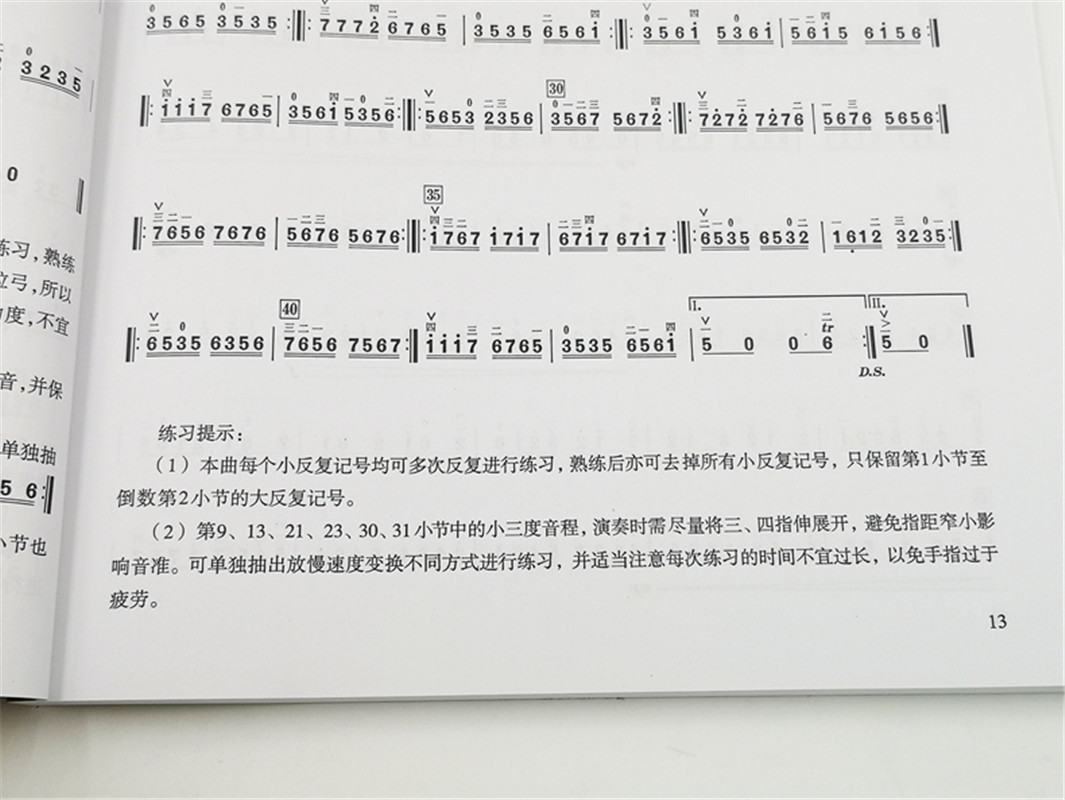 3565 3535 :‖: 7772̇ 6765 | 3535 6561̇ :‖: 3561̇ 5361̇ | 561̇5 61̇56 :‖
3235
‖: 1̇1̇1̇7 6765 | 3561̇ 5356 :‖: 5653 2356 | 30 3567 5672̇ :‖: 72̇72̇ 72̇76 | 5676 5656 :‖
0
‖: 7656 7676 | 5676 5676 :‖: 35 1̇767 1̇71̇7 | 671̇7 671̇7 :‖: 6535 6532 | 1612 3235 :‖
练习，熟练
拉弓，所以
度，不宜
‖: 6535 6356 | 40 7656 7567 :‖ 1̇1̇1̇7 6765 | 3535 6561̇ | I. 5 0 0 6 tr :‖ II. 5 0 ‖
D.S.
音，并保
单独抽
5 6 :‖
小节也
练习提示：
（1）本曲每个小反复记号均可多次反复进行练习，熟练后亦可去掉所有小反复记号，只保留第1小节至
倒数第2小节的大反复记号。
（2）第9、13、21、23、30、31小节中的小三度音程，演奏时需尽量将三、四指伸展开，避免指距窄小影
响音准。可单独抽出放慢速度变换不同方式进行练习，并适当注意每次练习的时间不宜过长，以免手指过于
疲劳。
13